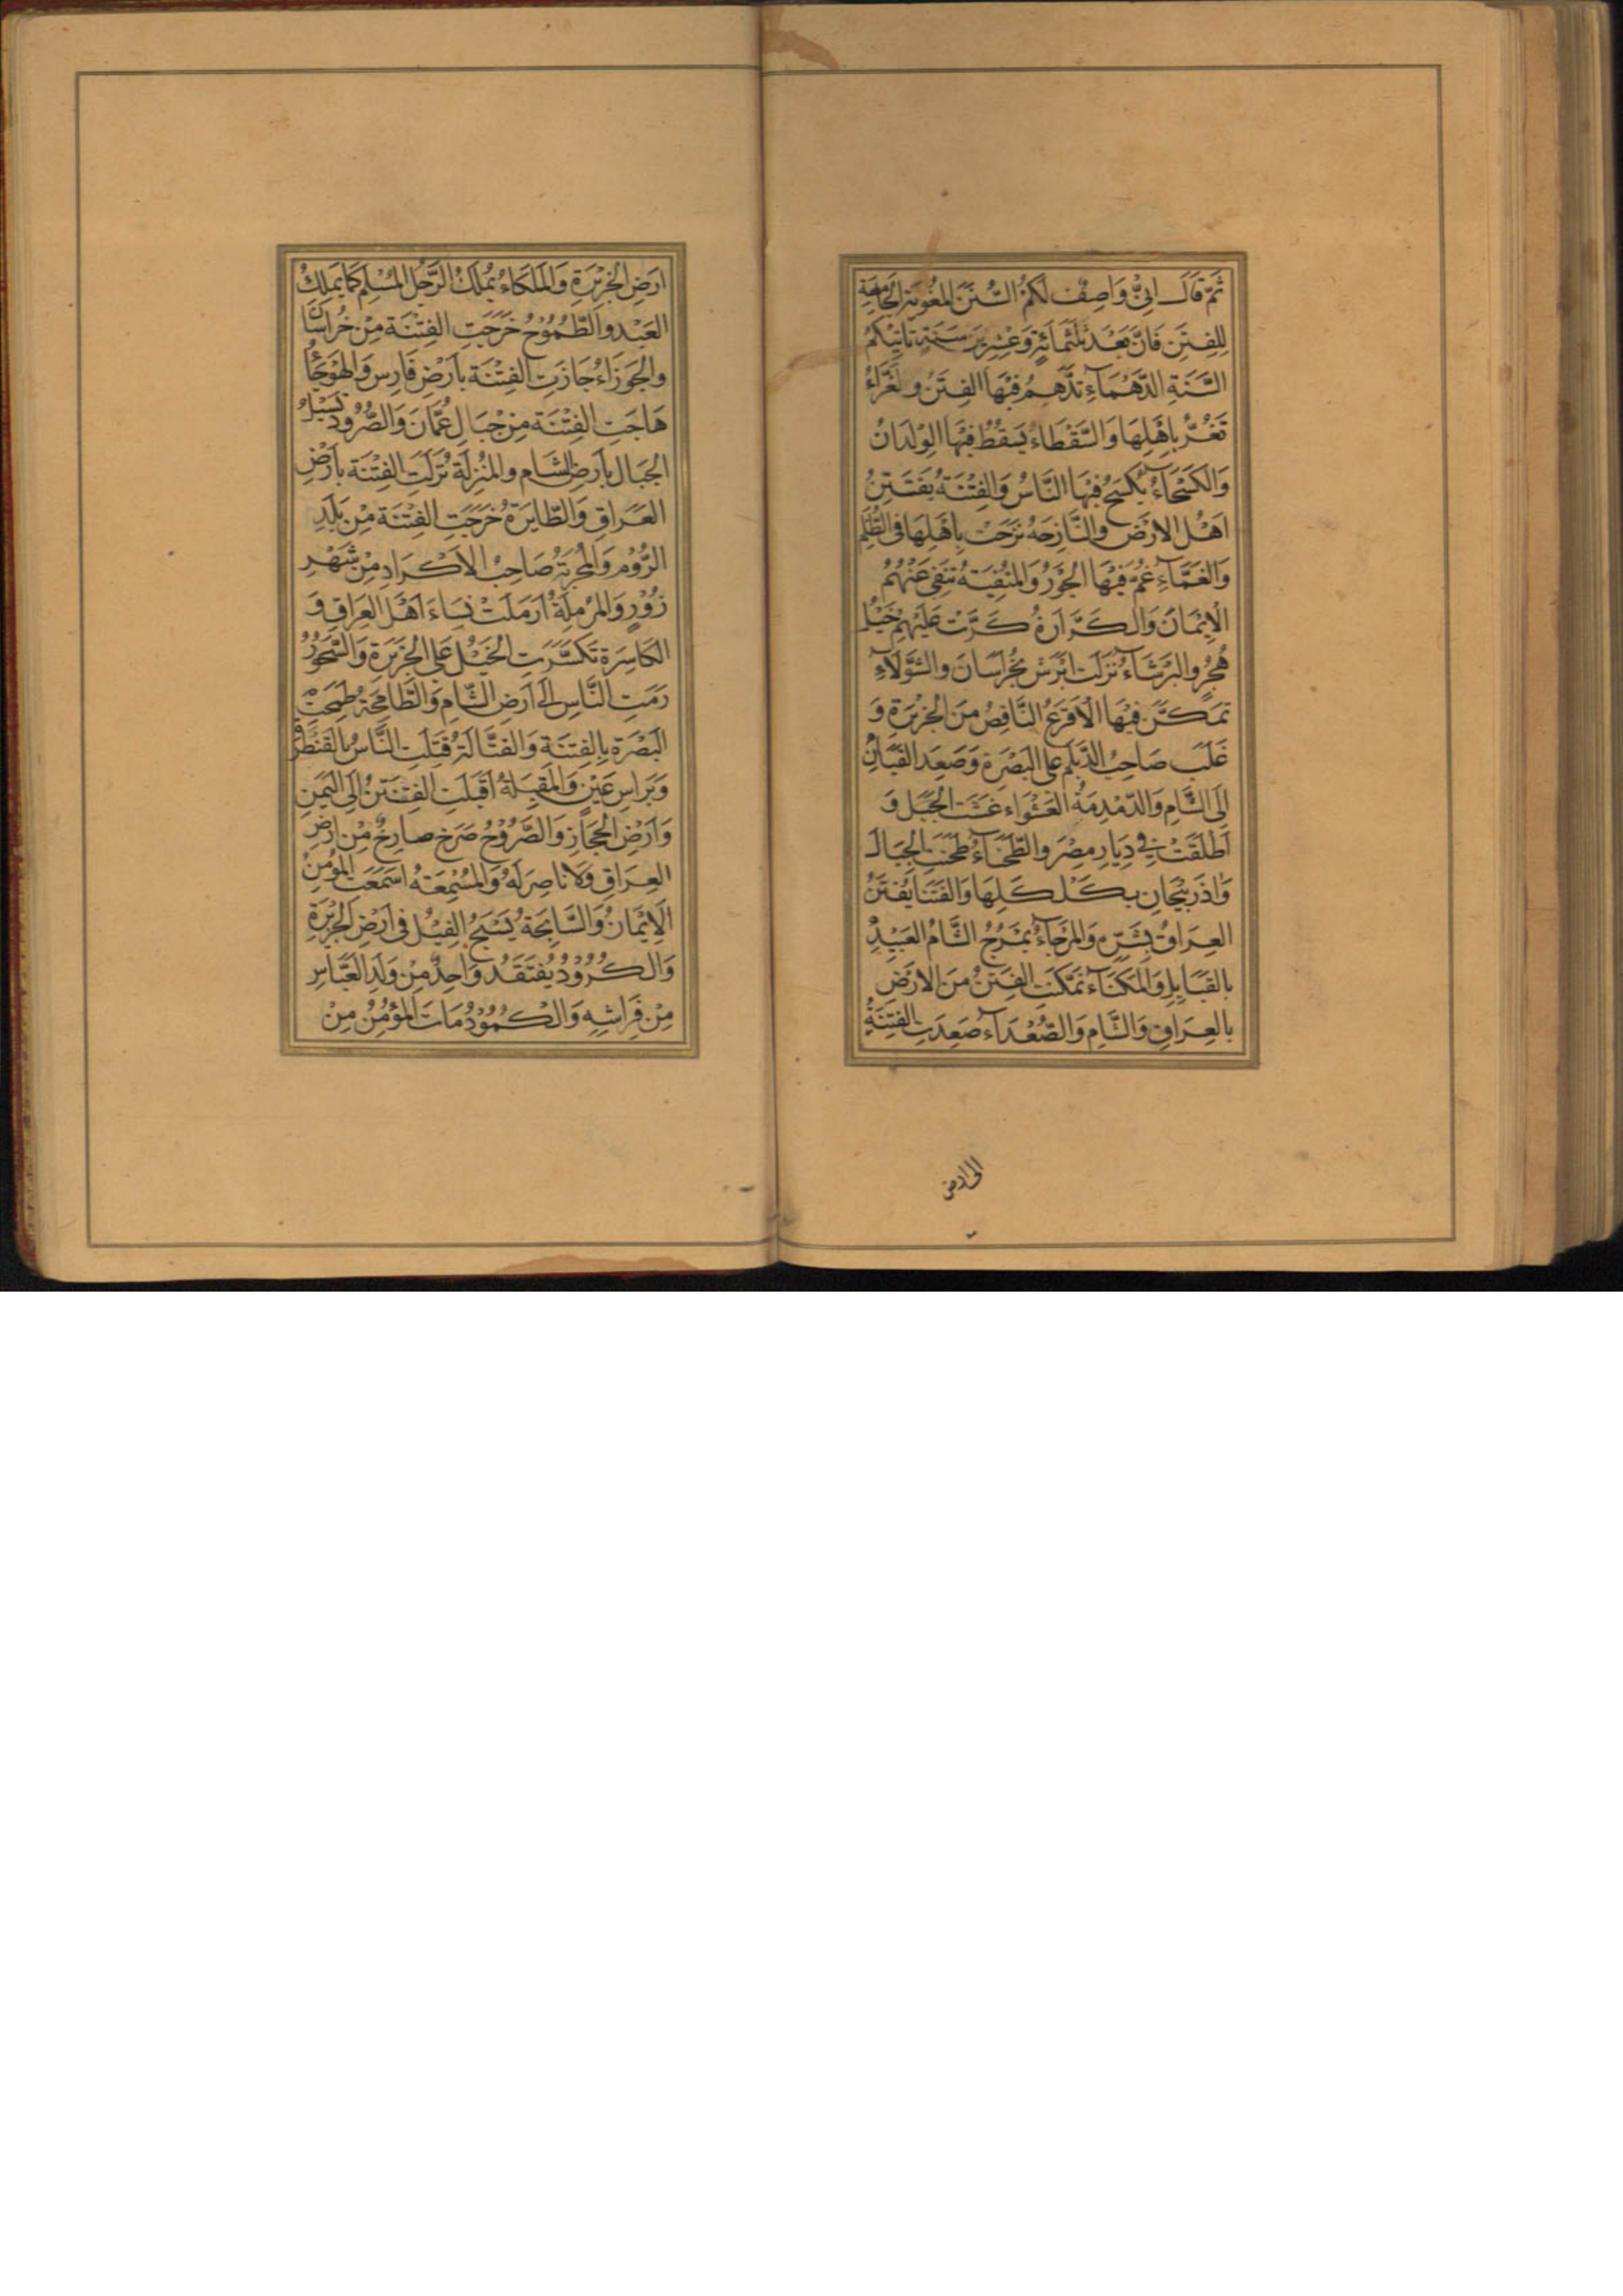 ثُمَّ قَالَ اِنِّىْ وَاصِفٌ لَكُمُ السُّنَنَ المُغْوِيَةَ الجَامِعَةِ
لِلفِتَنِ فَاِنَّ بَعْدَ ثَلٰثَمِائَةٍ وَعِشْرِيْنَ سَنَةٍ تَاتِيْكُمُ
السَّنَةِ الدَّهْمَاءِ تَدْهَمُ فِيْهَا الفِتَنُ والغَرَّاءُ
تَغُرُّ بِاَهْلِهَا وَالسَّقْطَاءُ يَسقُطُ فِيْهَا الوِلْدَانُ
وَالكَسْحَاءُ يُكْسَحُ فِيْهَا النَّاسُ وَالفِتْنَةُ يُفتَتِنُ
اَهْلُ الارْضِ والنَّازِحَهُ نَزَحَتْ بِاَهْلِهَا فِى الظُّلَمِ
وَالغَمَّاءِ غُمَّ فِيْهَا الجَوْرُ وَالمَنْفِيَةُ تَنْفِى عَنْهُمُ
الاِيْمَانَ وَالكَرَّارَةُ كَرَّتْ عَلَيْهِمْ خَيْلُ
هُجْرٍ والبَرشَاءُ نَزَلَتْ اَبْرَشْ بِخُراسَانَ والشَّوْلَاءِ
تمكَّن فِيْهَا الاَقرَعُ النَّاقِصُ مِنَ الجَزِيْرَةِ وَ
غَلَبَ صَاحِبُ الدَّيلَمِ عَلَى البَصْرَةِ وَصَعِدَ القَبَانِ
اِلَى الشَّامِ وَالدّمْدِمَةُ العَشْوَاء غَشَتِ الجَبَلَ وَ
اَطْلَقَتْ فِى دِيَارِ مِصْرَ والطَّحْنَاءُ طَحَنَتِ الجِبَالَ
وَاذَربِيْجَانِ بِكَلْكَلِهَا وَالفَتَنَا يُفتَنُ
العِرَاقُ بِشَرِّهِ وَالمَرْجَاءُ يَمْرُجُ الشَّامُ العَبِيْدِ
بالقَبَايِلِ وَالمَكَنَاء تَمَكَّنَتِ الفِتَنُ مِنَ الارْضِ
بالعِرَاقِ وَالشَّامِ وَالصُّعْدَاء صَعِدَتِ الفِتْنَةُ
الى ارض
اَرضِ الجَزِيْرَةِ وَالمَلكَاءُ يُملَكُ الرَّجُلُ المُسْلِمُ كَمَا يُملَكُ
العَبْدُ والطَّمُوْحُ خَرَجَتِ الفِتْنَةُ مِنْ خُراسَانَ
والجَوزَاءُ جَازَتِ الفِتْنَةُ بِاَرضِ فَارِس وَالهَوْجَاُ
هَاجَتِ الفِتْنَةُ مِنْ جِبَالِ عُمَّانَ وَالصَّرُودُ تَسِيْلُ
الجِبَالُ بِاَرضِ الشَّام والمُنْزِلَةُ نَزَلَتِ الفِتْنَة بِاَرْضِ
العِرَاقِ وَالطَّايِرَةُ خَرَجَتِ الفِتْنَةُ مِنْ بَلَدِ
الرُّوْم وَالمُحْرِبَةُ صَاحِبُ الاَكْرَادِ مِنْ شَهْرِ
زُوْرٍ وَالمُرْمِلَةُ اَرمَلَتْ نِسَاءَ اَهْلَ العِرَاقِ وَ
الكَاسِرَة تَكَسَّرَتِ الخَيْلُ عَلَى الجَزِيْرَةِ وَالسَّحُوْرُ
رَمَتِ النَّاس اِلَى اَرضِ الشَّامِ وَالطَّامِحَةُ طَمِحَتِ
البَصْرَة بِالفِتنَةِ وَالقتَّالَةُ قُتِلَتِ النَّاسُ بِالقَنْطَرَةِ
وَبَراسِ عَيْن وَالمُقبِلَةُ اَقبَلَتِ الفِتَنُ اِلَى اليَمَنِ
وَاَرْضِ الحِجَازِ وَالصَّرُوْخُ صَرَخ صَارِخٌ مِنْ ارْضِ
العِرَاقِ وَلَا نَاصِرَ لَهُ وَالمُسْمِعَةُ اَسمَعَتِ المُؤمِنَ
الاِيْمَانُ وَالسَّابِحَةُ يَسْبَحُ الفِيْلُ فِى اَرْضِ الجَزِيْرَةِ
وَالكَرُوْدُ يُفتَقَدُ وَاحِدٌ مِنْ وَلَدِ العَبَّاسِ
مِنْ فِرَاشِهِ وَالكَمُوْدُ مَاتَ المُؤمِنُ مِنْ